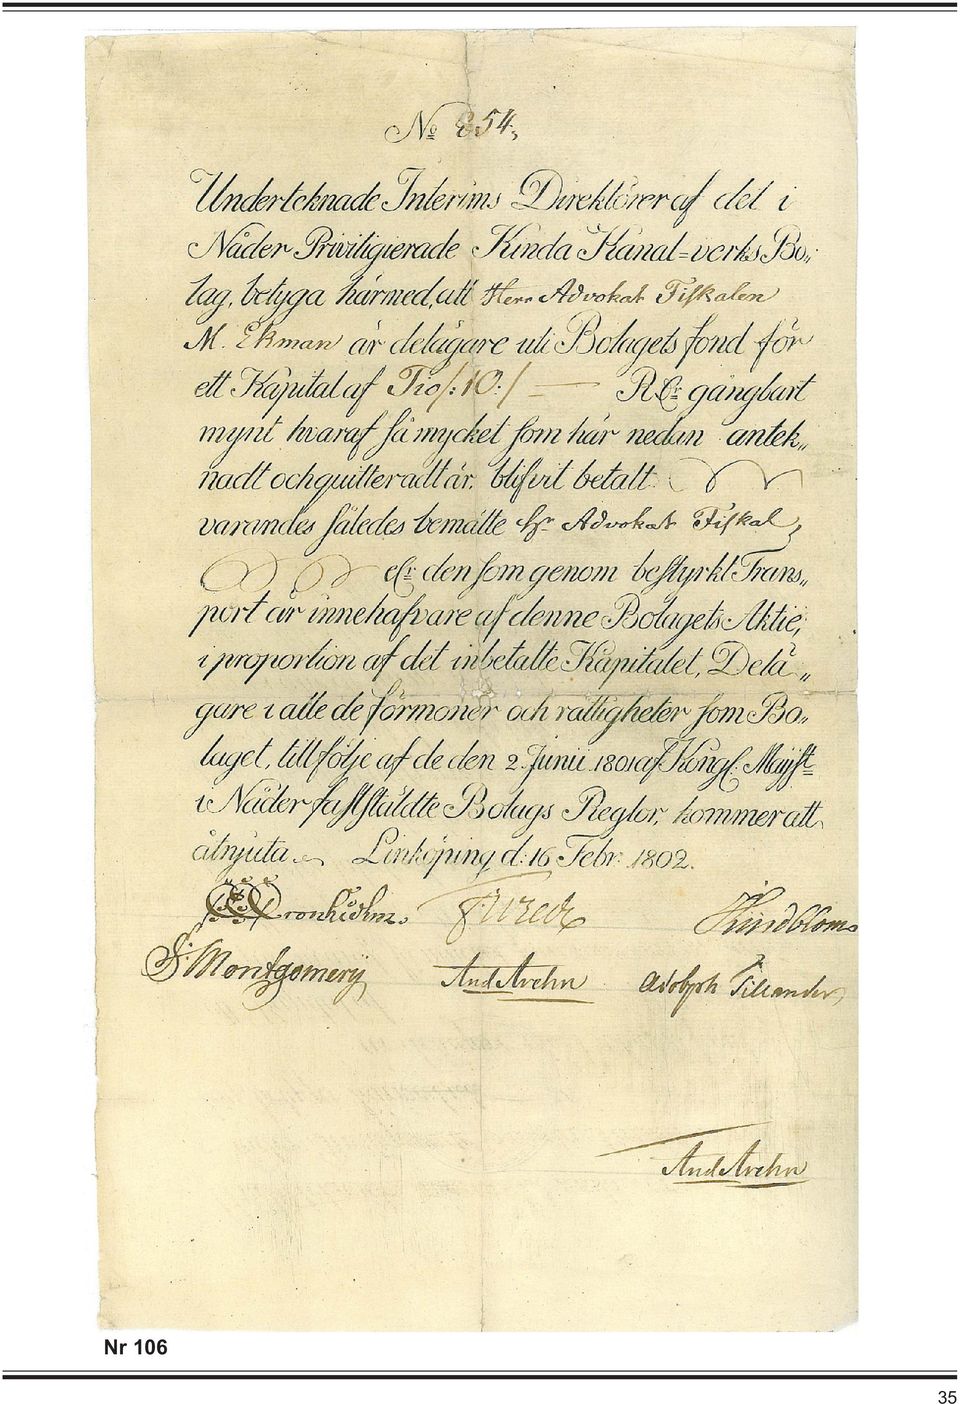 No 854.
Underteknade Interims Direktörer af det i
Nåder Priviligierade Kinda Kanal=verks Bo„
lag, betyga härmed, att Herr Advokat Fiskalen
M. Ekman är delägare uti Bolagets fond för
ett Kapital af Tio /: 10 :/ — R gångbart
mynt hvaraf så mycket som här nedan antek„
nadt och quitteradt är, blifvit betalt
varandes således bemälte Hr Advokat Fiskal
elr den som genom bestyrkt Trans„
port är innehafvare af denne Bolagets Aktie,
i proportion af det inbetalte Kapitalet, Delä„
gare i alle de förmoner och rättigheter som Bo„
laget, till följe af de den 2. Junii 1801 af Kongl: Maijst
i Nåder fastställdte Bolags Reglor, kommer att
åtnjuta Linköping d: 16 Febr. 1802.
Kindblom
S: Montgomerij And Arehn Adolph Tillander
And Arehn
Nr 106
35